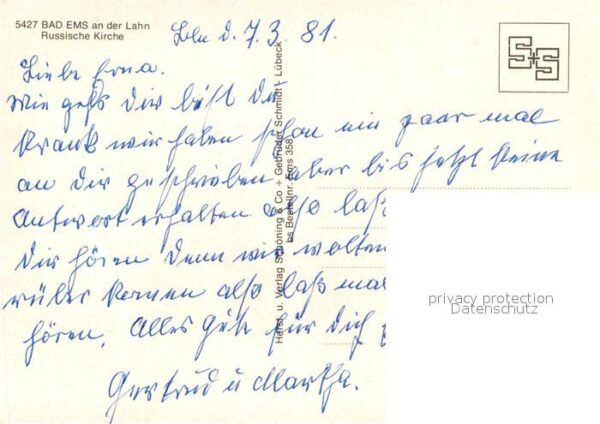 5427 BAD EMS an der Lahn
Russische Kirche
d. 7.3.81.
Liebe Erna.
Wie gehts Dir bist Du
Krank wir haben schon ein paar mal
an Dir geschrieben aber bis jetzt keine
Antwort erhalten also laß
Dir hören denn wir wollten
rüber kommen also laß mal
hören. Alles Gute für Dich
Gertrud u Martha.
Herst. u. Verlag Schöning & Co + Gebrüder Schmidt - Lübeck
Bestellnr. Ems 358
S+S
privacy protection
Datenschutz